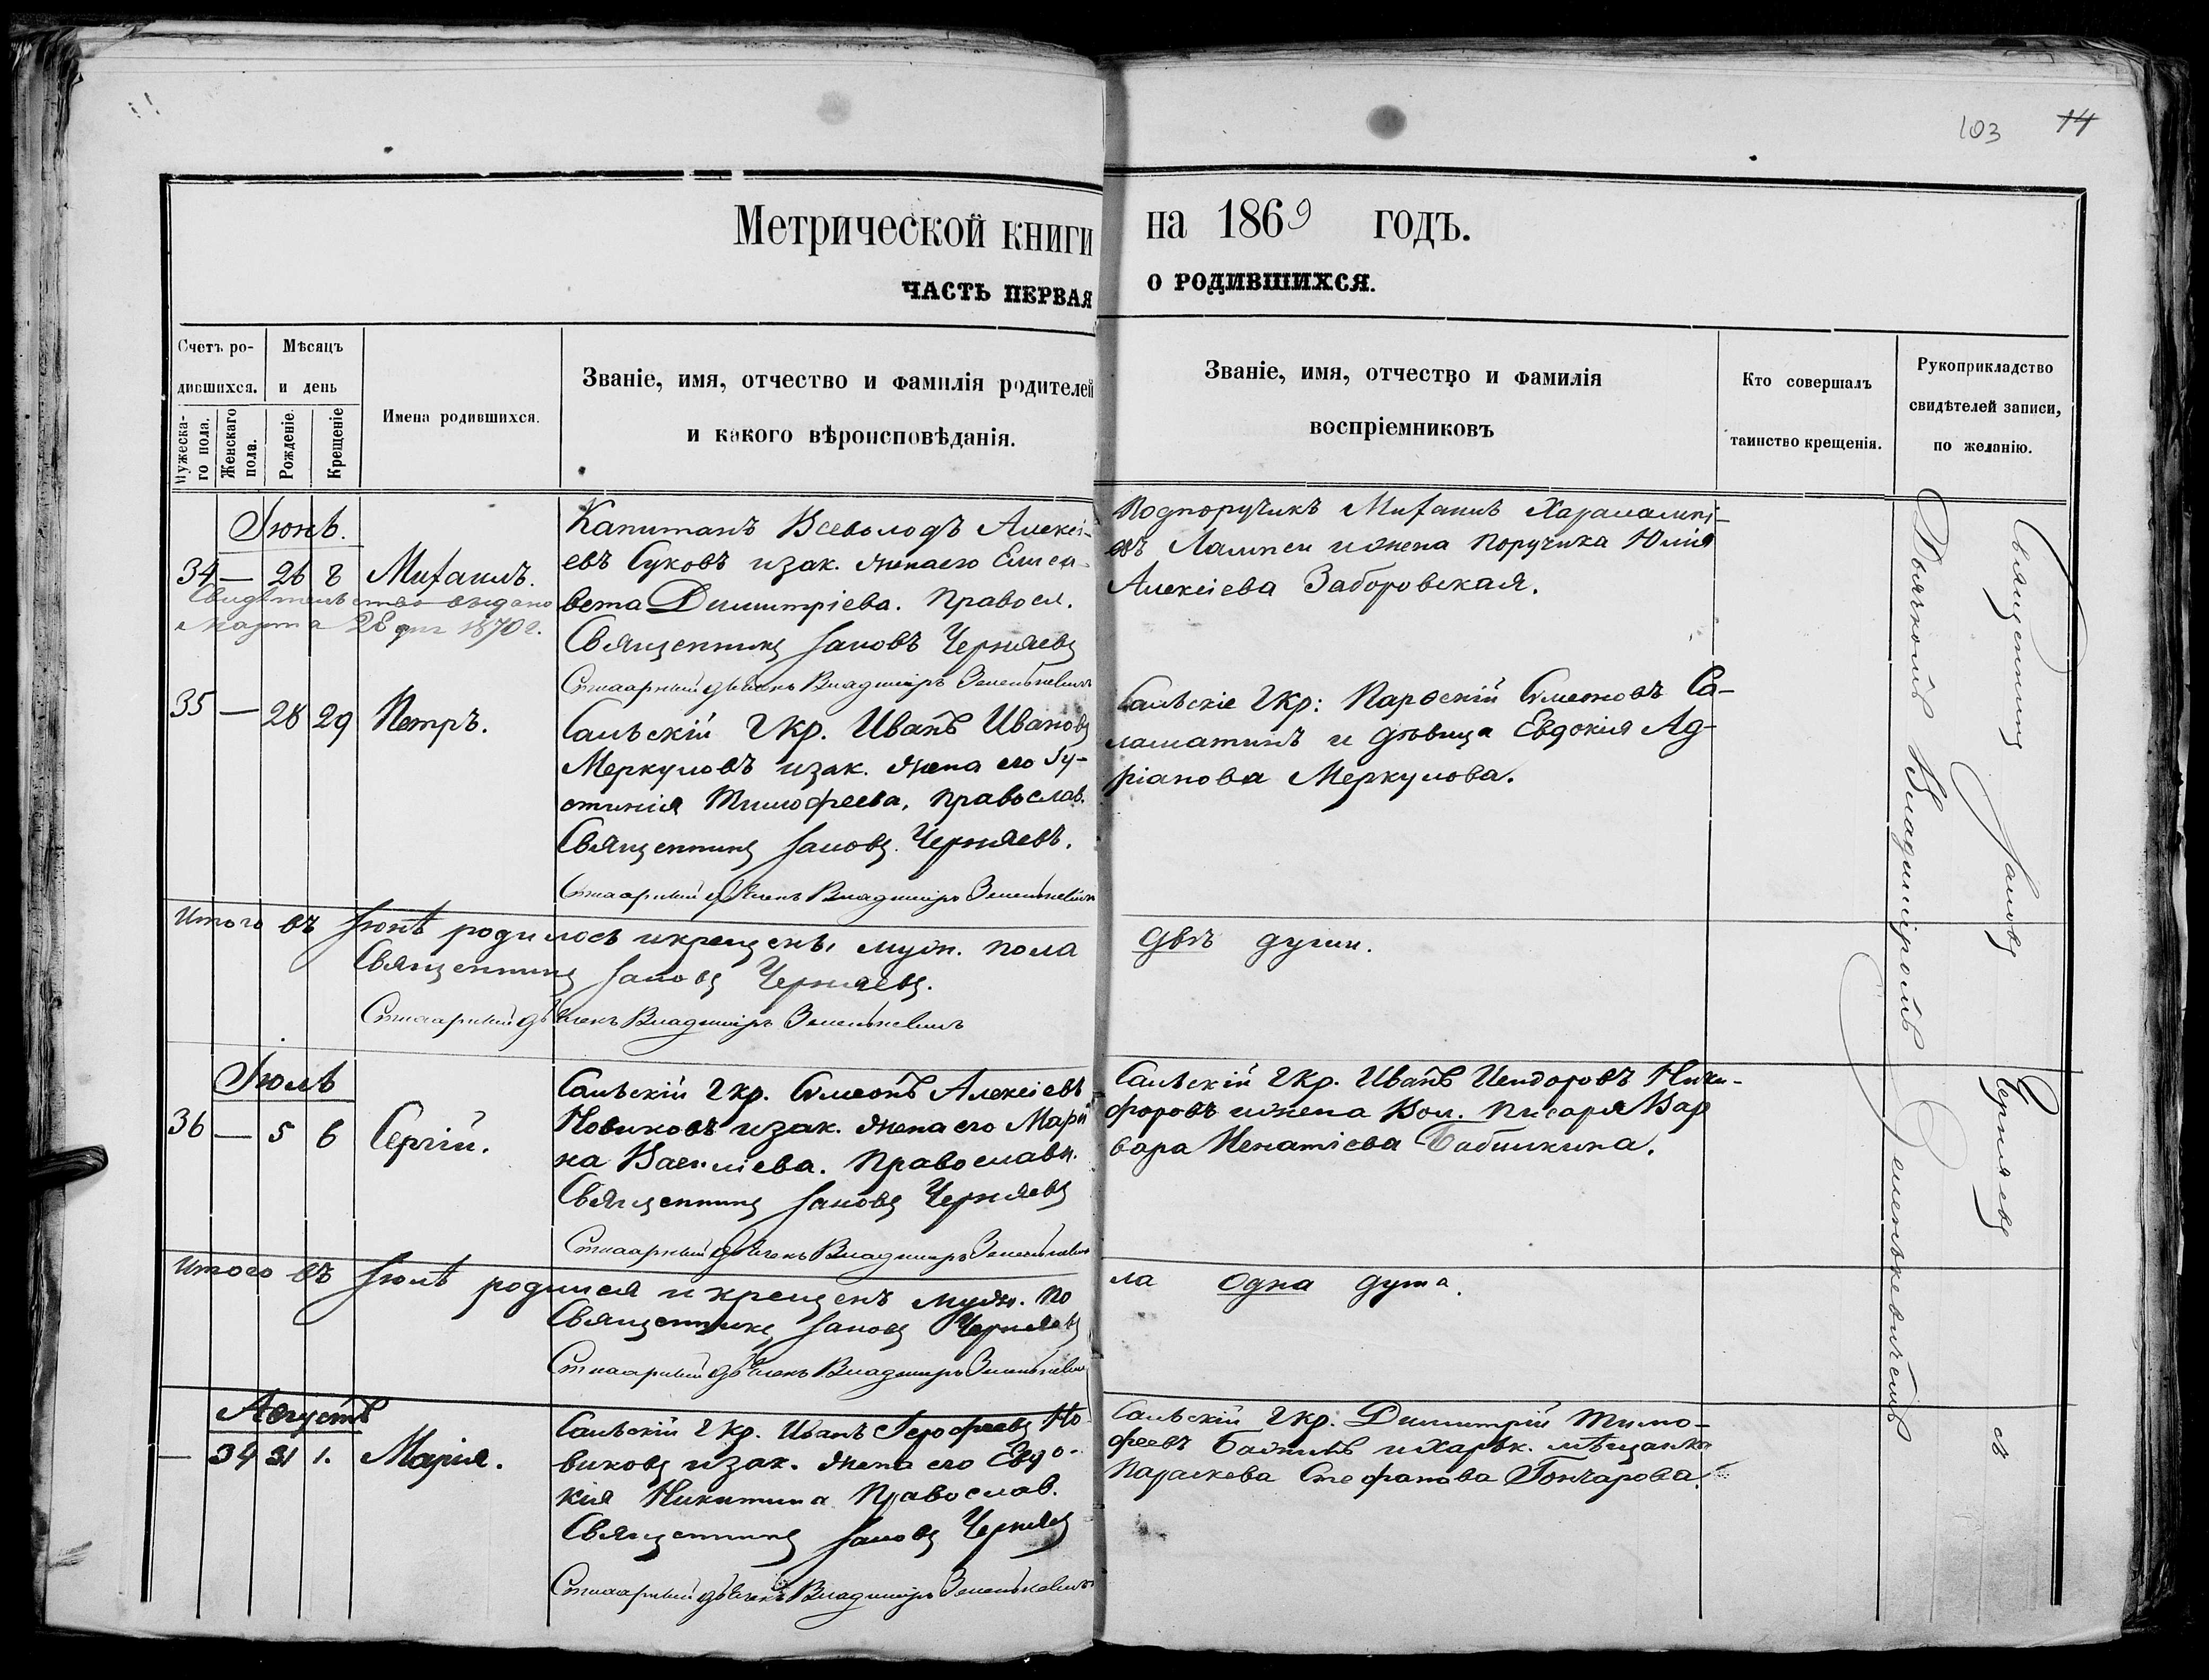 103 14
Метрической книги на 1869 годъ.
ЧАСТЬ ПЕРВАЯ О РОДИВШИХСЯ.
Счетъ ро-
дившихся.
Мужеска-
го пола.
Женскаго
пола.
Мѣсяцъ
и день
Рожденіе.
Крещеніе
Имена родившихся.
Званіе, имя, отчество и фамилія родителей
и какого вѣроисповѣданія.
Званіе, имя, отчество и фамилія
воспріемниковъ
Кто совершалъ
таинство крещенія.
Рукоприкладство
свидѣтелей записи,
по желанію.
Іюнь.
34 — 26 8 Михаилъ.
Свидѣтельство выдано
Марта 28 дня 1870 г.
Капитанъ Всеволодъ Алексі-
евъ Суковъ и зак. жена его Елиса-
вета Димитріева. Правосл.
Священникъ Іаковъ Черняевъ
Владиміръ Зеленькевичъ
Подпоручикъ Михаилъ Харалампі-
евъ Лампси и жена Поручика Юлія
Алексіева Заборовская.
35 — 28 29 Петръ.
Сальскій Гкр. Иванъ Ивановъ
Меркуловъ и зак. жена его Іу-
стинія Тимофеева, Православ.
Священникъ Іаковъ Черняевъ.
Владиміръ Зеленькевичъ
Сальскіе Гкр: Парѳеній Симеоновъ Са-
ламатинъ и дѣвица Евдокія Ад-
ріанова Меркулова.
Итого въ Іюнѣ родилось и крещены муж. пола двѣ души.
Священникъ Іаковъ Черняевъ.
Владиміръ Зеленькевичъ
Іюль
36 — 5 6 Сергій.
Сальскій Гкр. Симеонъ Алексіевъ
Новиковъ и зак. жена его Мари
на Василіева. Православн.
Священникъ Іаковъ Черняевъ
Владиміръ Зеленькевичъ
Сальскій Гкр. Иванъ Исидоровъ Ники-
форовъ и жена Вол. Писаря Вар
вара Игнатіева Бабишкина.
Итого въ Іюлѣ родился и крещенъ муж. по ла одна душа.
Священникъ Іаковъ Черняевъ
Владиміръ Зеленькевичъ
Августъ
— 34 31 1. Марія.
Сальскій Гкр. Иванъ Іерофеевъ Но-
виковъ и зак. жена его Евдо-
кія Никитина Православ.
Священникъ Іаковъ Черняевъ
Владиміръ Зеленькевичъ
Сальскій Гкр. Димитрій Тимо-
феевъ и Харьк. мѣщанка
Параскева Стефанова Гончарова.
Священникъ Іаковъ Черняевъ съ
Дьячкомъ Владиміромъ Зеленькевичемъ